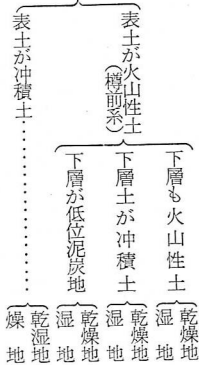 表土が火山性土
(樽前系)
下層も火山性土
乾燥地
湿地
下層土が冲積土
乾燥地
湿地
下層が低位泥炭地
乾燥地
湿地
表土が冲積土…………
乾湿地
燥地